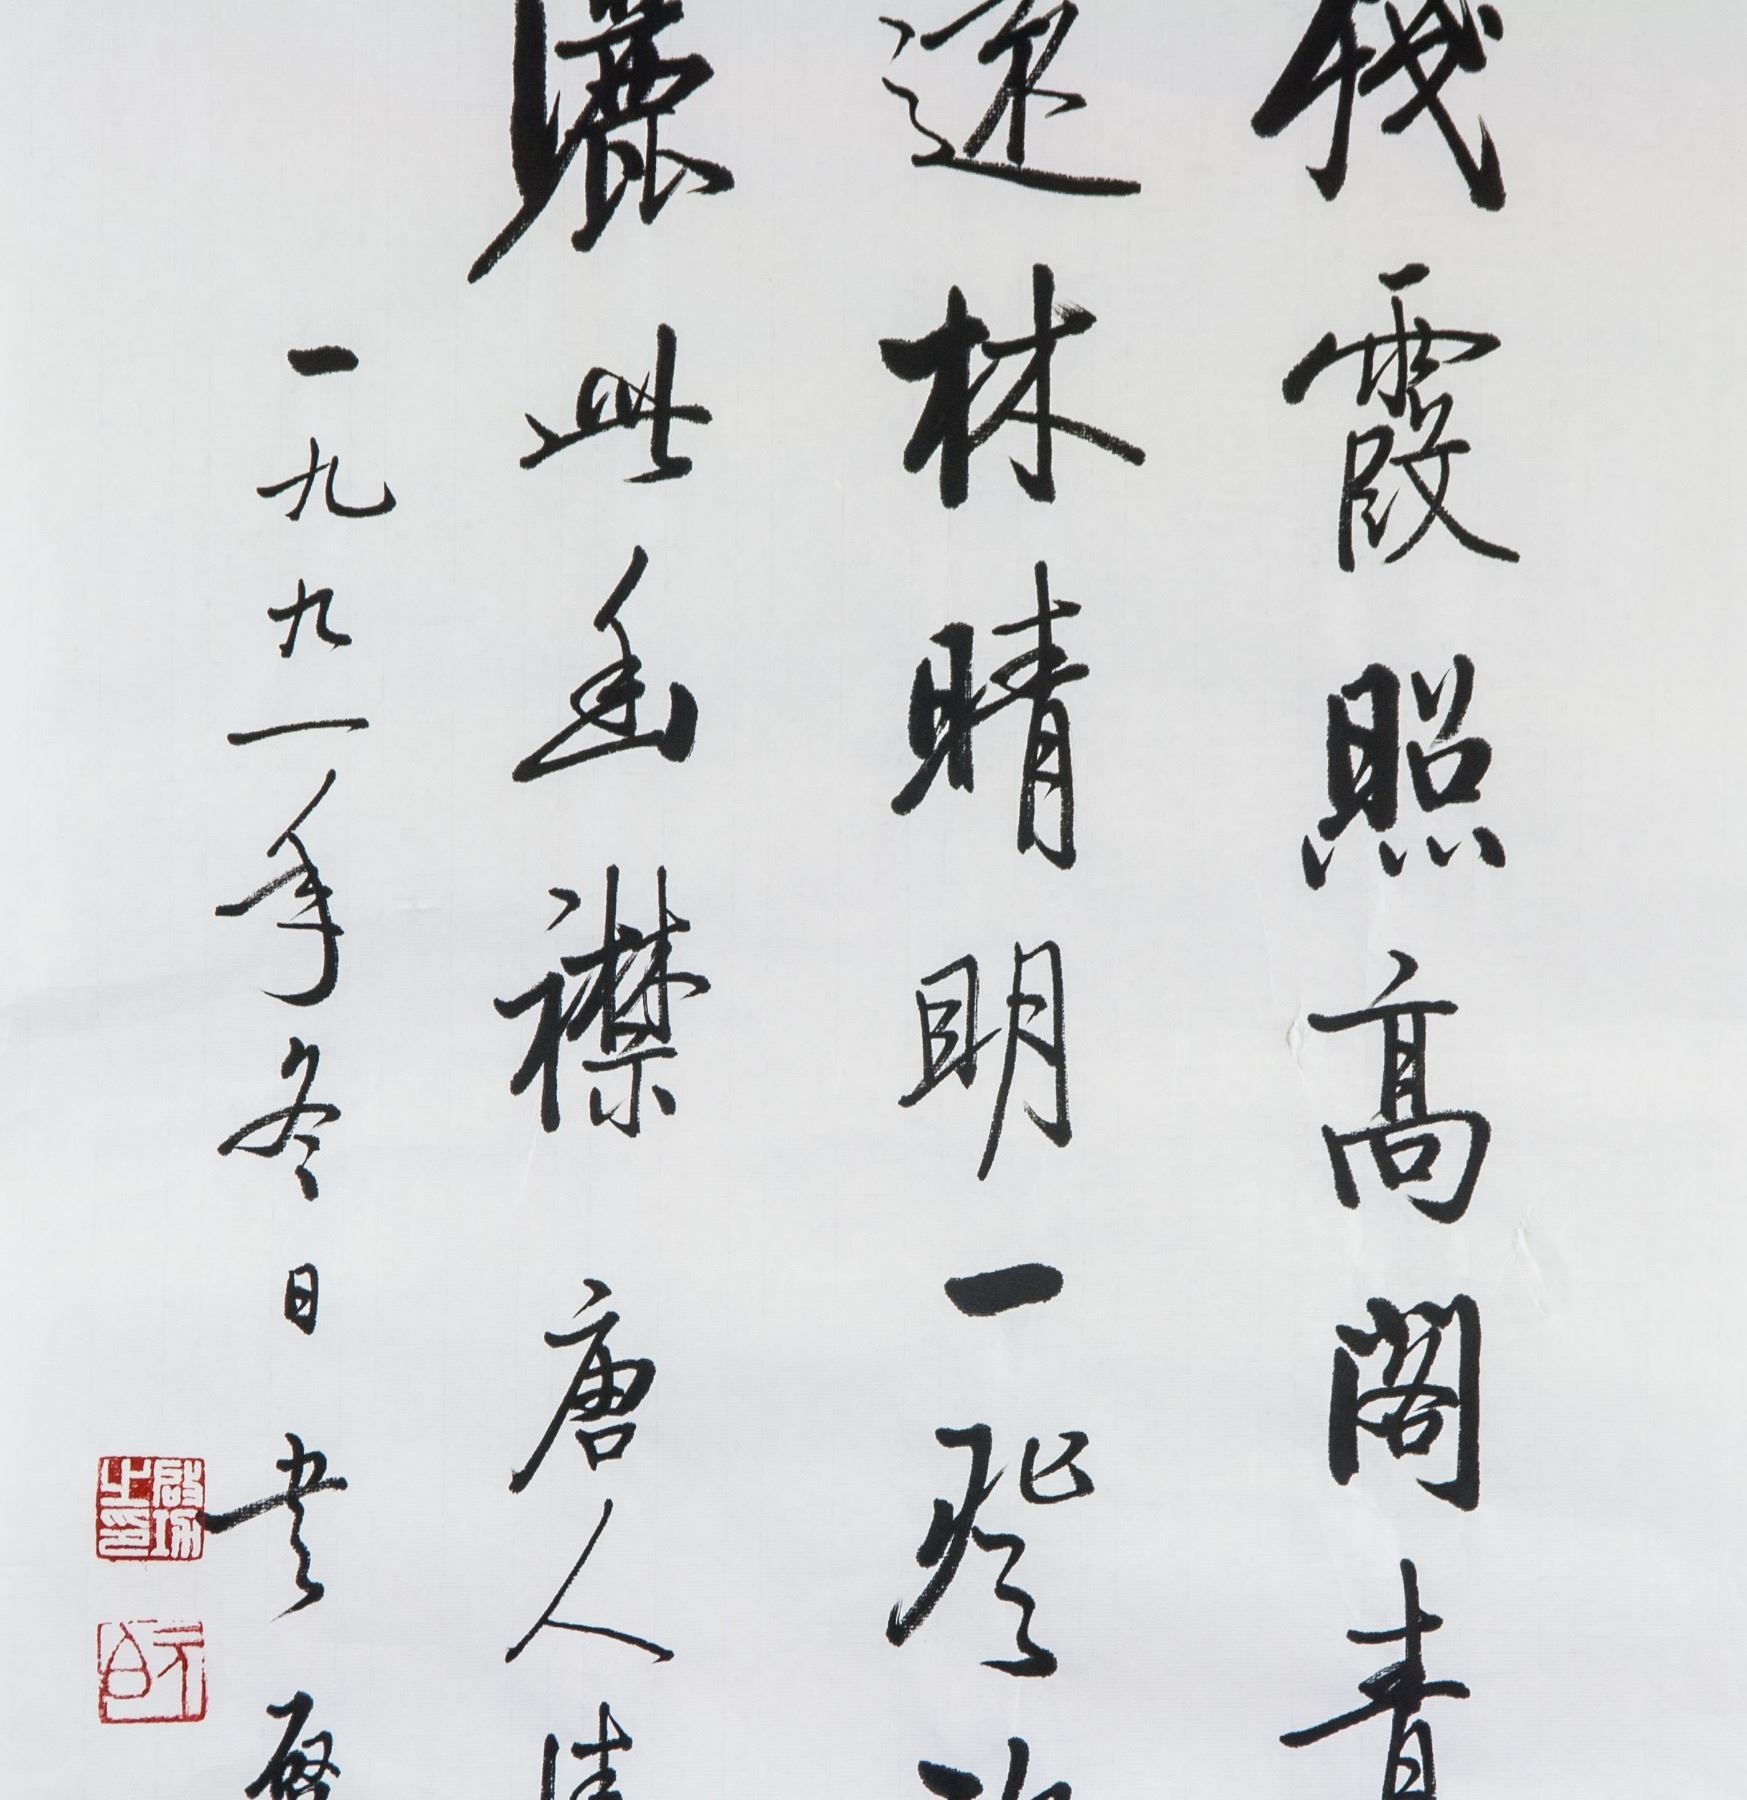 殘霞照高閣青
遠林晴明一登
灑此幽襟 唐人佳
一九九一年冬日書 啟
啟功之印
元白